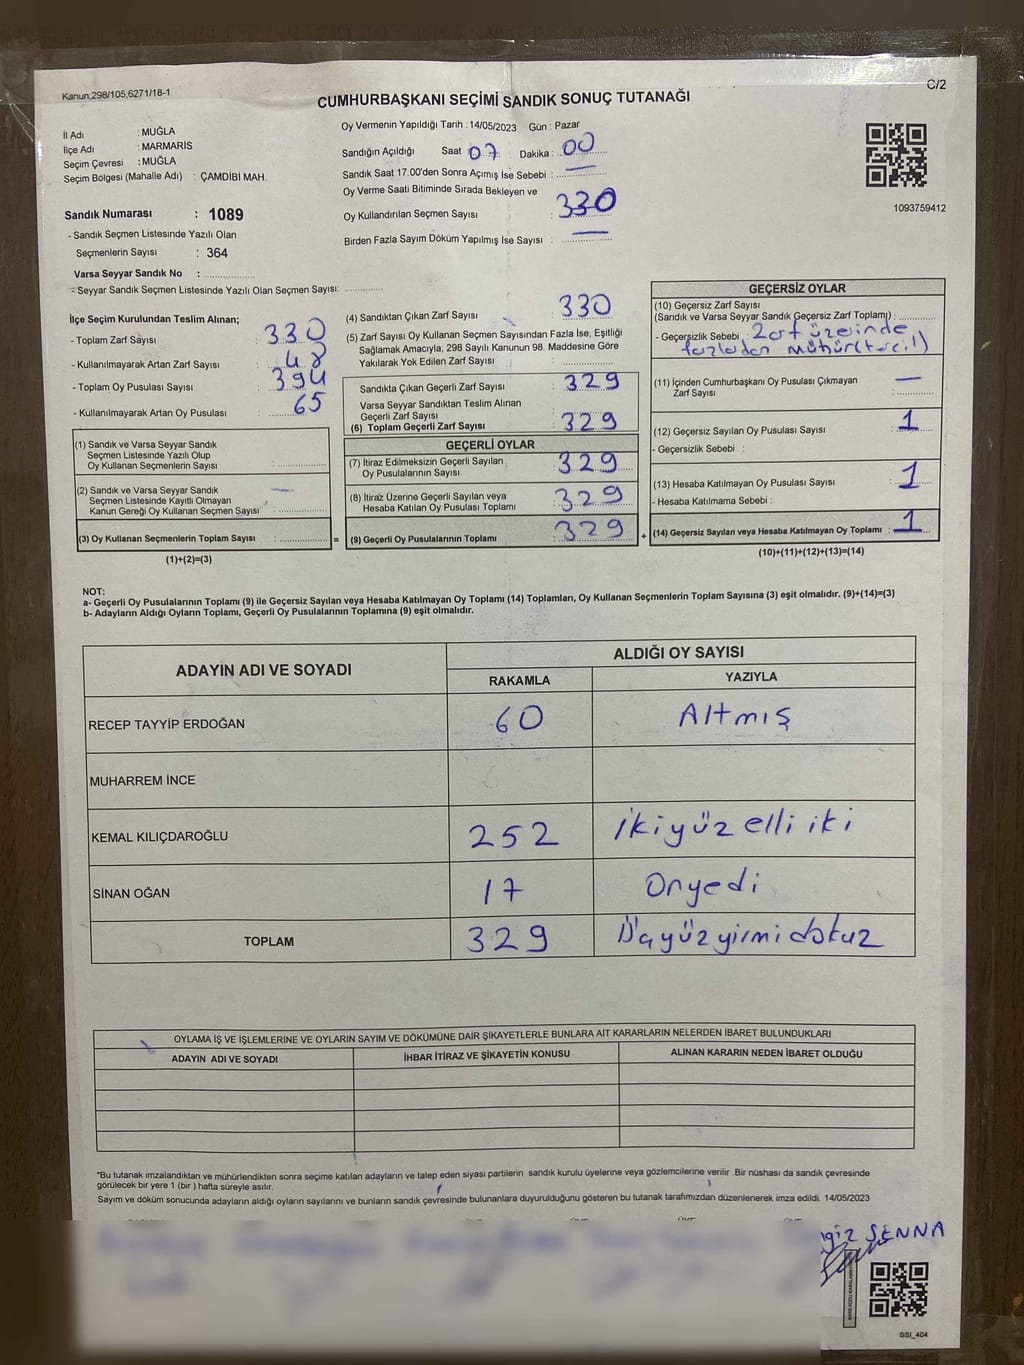 Kanun;298/105;6271/18-1
C/2
CUMHURBAŞKANI SEÇİMİ SANDIK SONUÇ TUTANAĞI
İl Adı : MUĞLA
İlçe Adı : MARMARİS
Seçim Çevresi : MUĞLA
Seçim Bölgesi (Mahalle Adı) : ÇAMDİBİ MAH.
Sandık Numarası : 1089
- Sandık Seçmen Listesinde Yazılı Olan
Seçmenlerin Sayısı : 364
Varsa Seyyar Sandık No :
- Seyyar Sandık Seçmen Listesinde Yazılı Olan Seçmen Sayısı:
Oy Vermenin Yapıldığı Tarih : 14/05/2023 Gün : Pazar
Sandığın Açıldığı Saat 07 Dakika : 00
Sandık Saat 17.00'den Sonra Açımış İse Sebebi : —
Oy Verme Saati Bitiminde Sırada Bekleyen ve
Oy Kullandırılan Seçmen Sayısı : 330
Birden Fazla Sayım Döküm Yapılmış İse Sayısı : —
1093759412
İlçe Seçim Kurulundan Teslim Alınan;
- Toplam Zarf Sayısı : 330
- Kullanılmayarak Artan Zarf Sayısı : 48
- Toplam Oy Pusulası Sayısı : 394
- Kullanılmayarak Artan Oy Pusulası : 65
(1) Sandık ve Varsa Seyyar Sandık
Seçmen Listesinde Yazılı Olup
Oy Kullanan Seçmenlerin Sayısı :
(2) Sandık ve Varsa Seyyar Sandık —
Seçmen Listesinde Kayıtlı Olmayan
Kanun Gereği Oy Kullanan Seçmen Sayısı :
(3) Oy Kullanan Seçmenlerin Toplam Sayısı :
=
(1)+(2)=(3)
(4) Sandıktan Çıkan Zarf Sayısı : 330
(5) Zarf Sayısı Oy Kullanan Seçmen Sayısından Fazla İse, Eşitliği
Sağlamak Amacıyla, 298 Sayılı Kanunun 98. Maddesine Göre
Yakılarak Yok Edilen Zarf Sayısı :
Sandıkta Çıkan Geçerli Zarf Sayısı : 329
Varsa Seyyar Sandıktan Teslim Alınan
Geçerli Zarf Sayısı :
(6) Toplam Geçerli Zarf Sayısı : 329
GEÇERLİ OYLAR
(7) İtiraz Edilmeksizin Geçerli Sayılan
Oy Pusulalarının Sayısı : 329
(8) İtiraz Üzerine Geçerli Sayılan veya
Hesaba Katılan Oy Pusulası Toplamı : 329
(9) Geçerli Oy Pusulalarının Toplamı : 329
+
GEÇERSİZ OYLAR
(10) Geçersiz Zarf Sayısı
(Sandık ve Varsa Seyyar Sandık Geçersiz Zarf Toplamı) :
- Geçersizlik Sebebi : Zarf üzerinde
fazladan mühür(tercil)
(11) İçinden Cumhurbaşkanı Oy Pusulası Çıkmayan
Zarf Sayısı : —
(12) Geçersiz Sayılan Oy Pusulası Sayısı : 1
- Geçersizlik Sebebi :
(13) Hesaba Katılmayan Oy Pusulası Sayısı : 1
- Hesaba Katılmama Sebebi :
(14) Geçersiz Sayılan veya Hesaba Katılmayan Oy Toplamı : 1
(10)+(11)+(12)+(13)=(14)
NOT:
a- Geçerli Oy Pusulalarının Toplamı (9) ile Geçersiz Sayılan veya Hesaba Katılmayan Oy Toplamı (14) Toplamları, Oy Kullanan Seçmenlerin Toplam Sayısına (3) eşit olmalıdır. (9)+(14)=(3)
b- Adayların Aldığı Oyların Toplamı, Geçerli Oy Pusulalarının Toplamına (9) eşit olmalıdır.
ADAYIN ADI VE SOYADI
ALDIĞI OY SAYISI
RAKAMLA YAZIYLA
RECEP TAYYİP ERDOĞAN 60 Altmış
MUHARREM İNCE
KEMAL KILIÇDAROĞLU 252 İkiyüz elli iki
SİNAN OĞAN 17 Onyedi
TOPLAM 329 Üçyüz yirmi dokuz
OYLAMA İŞ VE İŞLEMLERİNE VE OYLARIN SAYIM VE DÖKÜMÜNE DAİR ŞİKAYETLERLE BUNLARA AİT KARARLARIN NELERDEN İBARET BULUNDUKLARI
ADAYIN ADI VE SOYADI İHBAR İTİRAZ VE ŞİKAYETİN KONUSU ALINAN KARARIN NEDEN İBARET OLDUĞU
*Bu tutanak imzalandıktan ve mühürlendikten sonra seçime katılan adayların ve talep eden siyasi partilerin sandık kurulu üyelerine veya gözlemcilerine verilir. Bir nüshası da sandık çevresinde
görülecek bir yere 1 (bir ) hafta süreyle asılır.
Sayım ve döküm sonucunda adayların aldığı oyların sayılarını ve bunların sandık çevresinde bulunanlara duyurulduğunu gösteren bu tutanak tarafımızdan düzenlenerek imza edildi. 14/05/2023
ŞENNA
SSİ_404